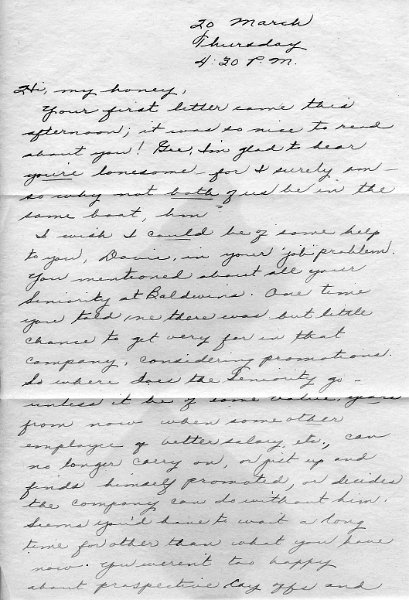 20 March
Thursday
4:30 P.M.
Hi, my honey,
Your first letter came this
afternoon; it was so nice to read
about you! Gee, I'm glad to hear
you're lonesome - for I surely am -
so why not both of us be in the
same boat, hm
I wish I could be of some help
to you, Davis, in your 'job' problem.
You mentioned about all your
Seniority at Baldwins. One time
you told me there was but little
chance to get very far in that
company, considering promotions.
So where does the Seniority go -
unless it be of some value, years
from now when some other
employee of better salary, etc., can
no longer carry on, or pit up and
finds himself promoted, or decides
the company can do without him.
Seems you'd have to wait a long
time for other than what you have
now. You weren't too happy
about prospective lay offs and